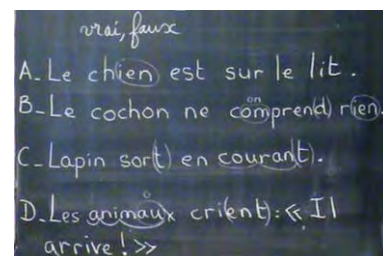 vrai, faux
A_Le chien est sur le lit.
on
B_Le cochon ne comprend) rien.
C_Lapin sor(t) en couran(t).
o
D_Les animaux cri(ent): « Il
arrive! »